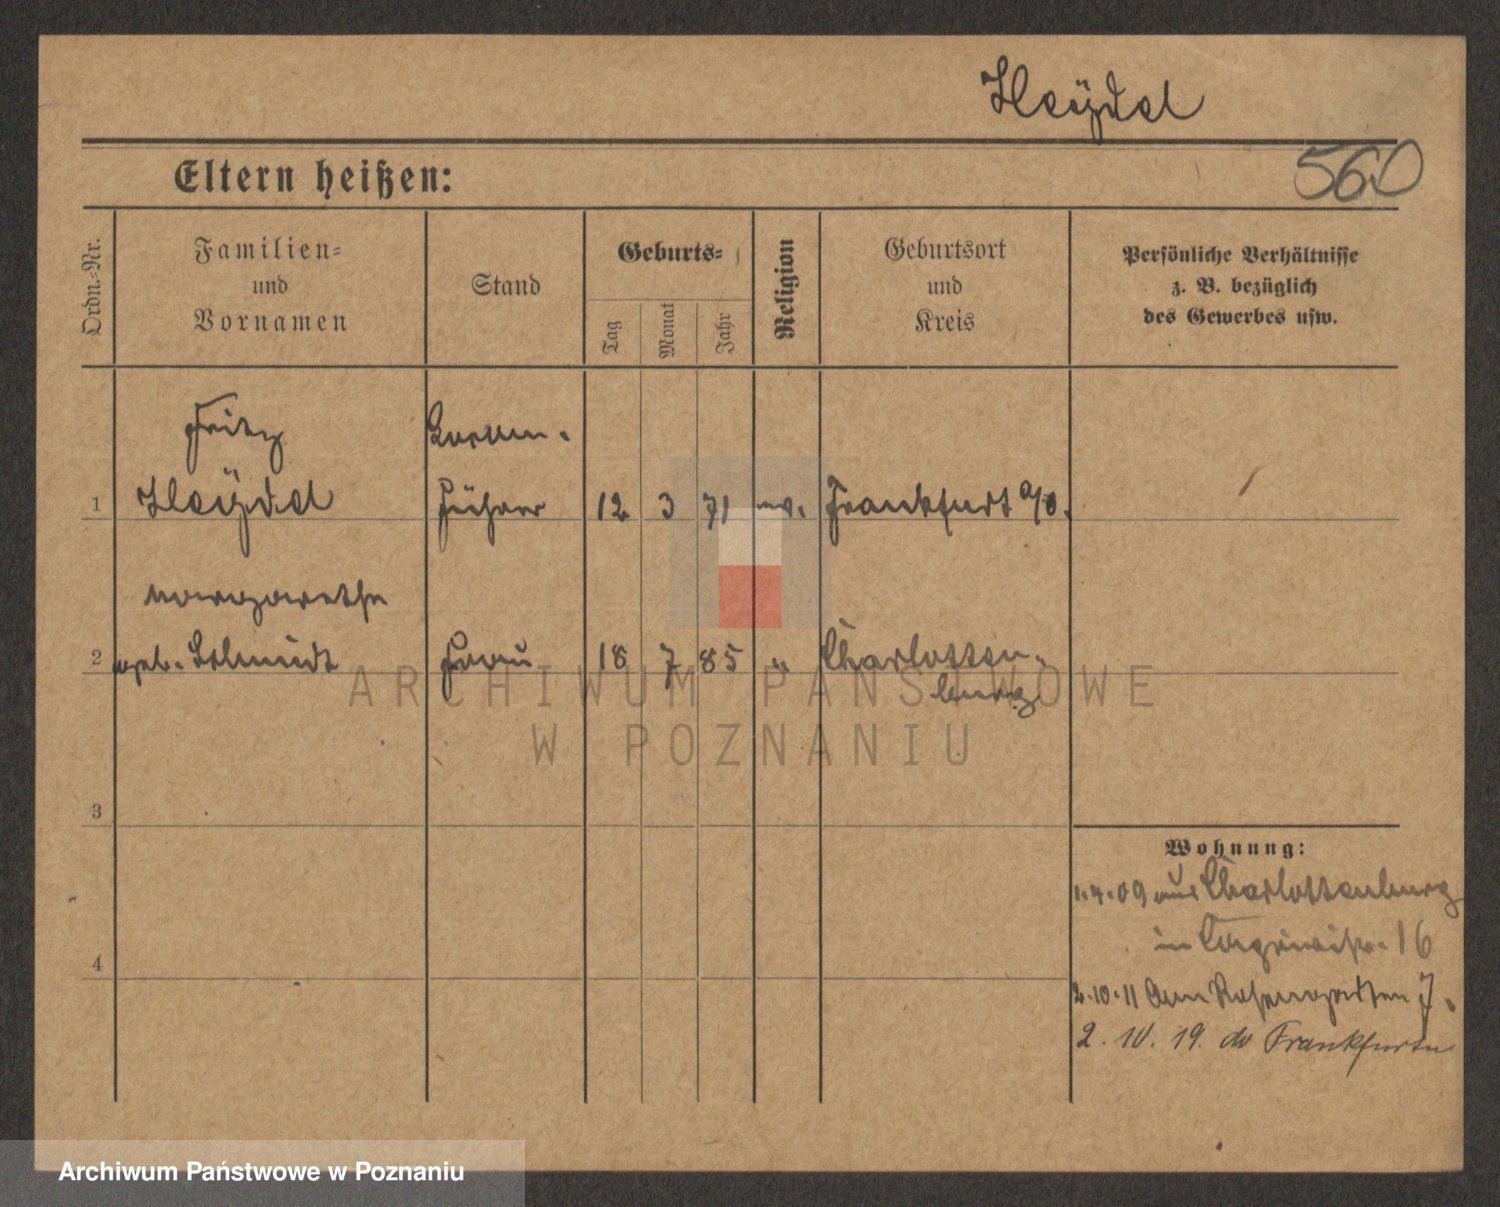 Heydel
560
Eltern heißen:
Ordn.-Nr.
Familien-
und
Vornamen
Stand
Geburts-
Tag
Monat
Jahr
Religion
Geburtsort
und
Kreis
Persönliche Verhältnisse
z. B. bezüglich
des Gewerbes usw.
Fritz
1 Heydel führer 12 3 71 ev. Frankfurt a/O.
Margarethe
2 geb. Schmidt Frau 18 7 85 " Charlotten-
burg
3
4
Wohnung:
1.4.09 aus Charlottenburg
in 16
2.10.11 Am Rosengarten 7.
2. 10. 19. do Frankfurt
ARCHIWUM PAŃSTWOWE
W POZNANIU
Archiwum Państwowe w Poznaniu